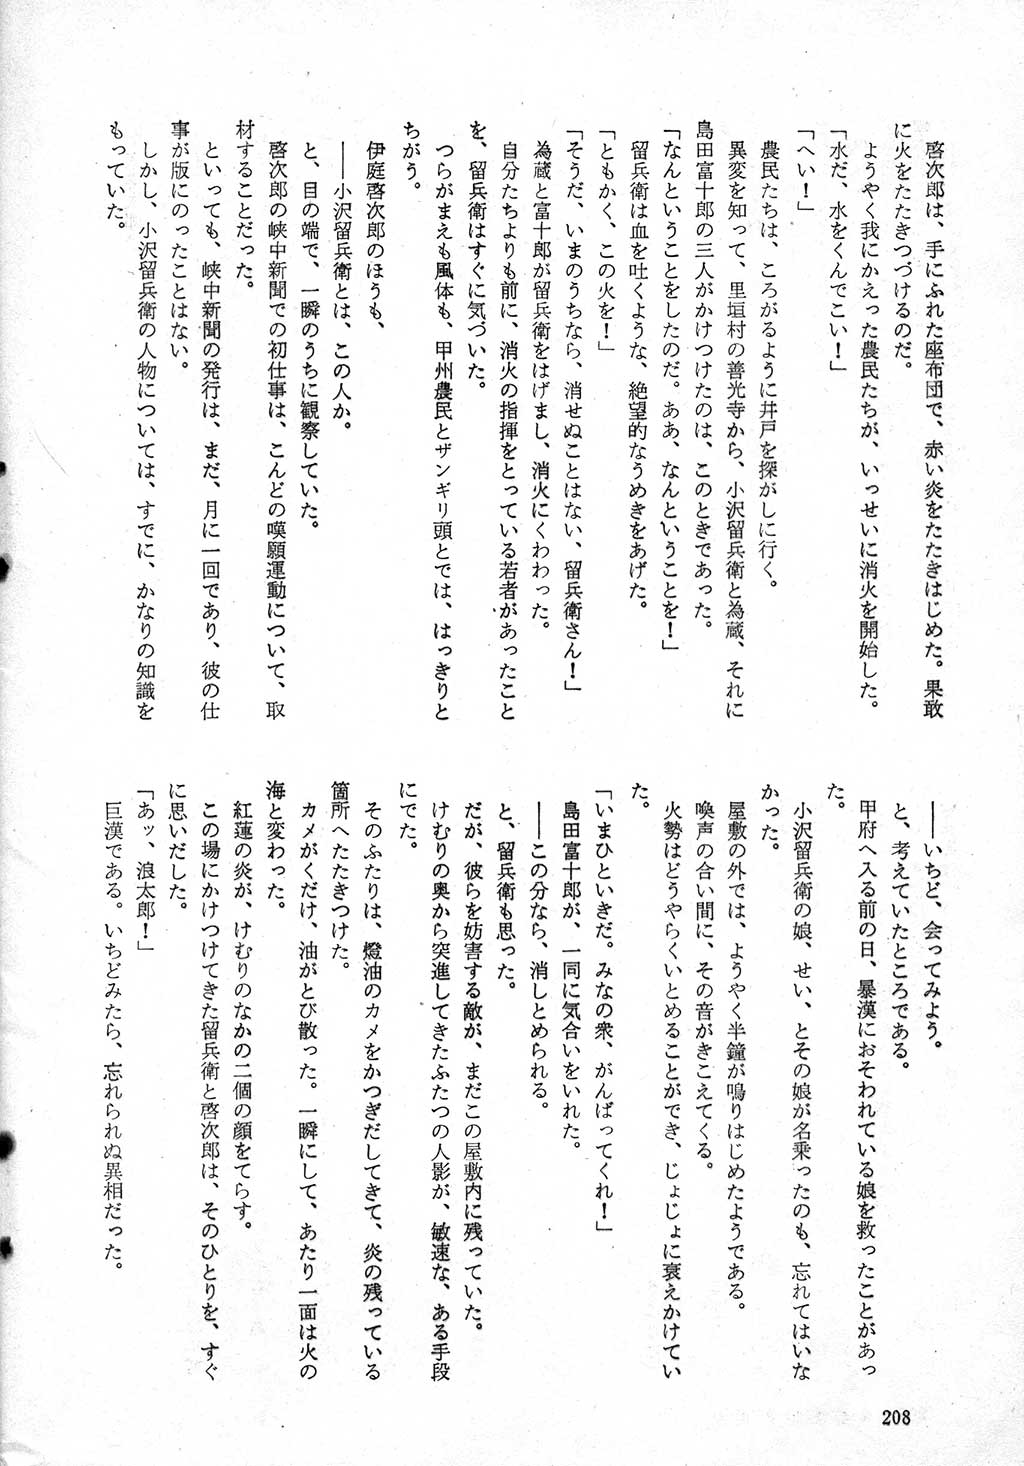 啓次郎は、手にふれた座布団で、赤い炎をたたきはじめた。果敢
に火をたたきつづけるのだ。
ようやく我にかえった農民たちが、いっせいに消火を開始した。
「水だ、水をくんでこい！」
「へい！」
農民たちは、ころがるように井戸を探がしに行く。
異変を知って、里垣村の善光寺から、小沢留兵衛と為蔵、それに
島田富十郎の三人がかけつけたのは、このときであった。
「なんということをしたのだ。ああ、なんということを！」
留兵衛は血を吐くような、絶望的なうめきをあげた。
「ともかく、この火を！」
「そうだ、いまのうちなら、消せぬことはない、留兵衛さん！」
為蔵と富十郎が留兵衛をはげまし、消火にくわわった。
自分たちよりも前に、消火の指揮をとっている若者があったこと
を、留兵衛はすぐに気づいた。
つらがまえも風体も、甲州農民とザンギリ頭とでは、はっきりと
ちがう。
伊庭啓次郎のほうも、
――小沢留兵衛とは、この人か。
と、目の端で、一瞬のうちに観察していた。
啓次郎の峡中新聞での初仕事は、こんどの嘆願運動について、取
材することだった。
といっても、峡中新聞の発行は、まだ、月に一回であり、彼の仕
事が版にのったことはない。
しかし、小沢留兵衛の人物については、すでに、かなりの知識を
もっていた。
――いちど、会ってみよう。
と、考えていたところである。
甲府へ入る前の日、暴漢におそわれている娘を救ったことがあっ
た。
小沢留兵衛の娘、せい、とその娘が名乗ったのも、忘れてはいな
かった。
屋敷の外では、ようやく半鐘が鳴りはじめたようである。
喚声の合い間に、その音がきこえてくる。
火勢はどうやらくいとめることができ、じょじょに衰えかけてい
た。
「いまひといきだ。みなの衆、がんばってくれ！」
島田富十郎が、一同に気合いをいれた。
――この分なら、消しとめられる。
と、留兵衛も思った。
だが、彼らを妨害する敵が、まだこの屋敷内に残っていた。
けむりの奥から突進してきたふたつの人影が、敏速な、ある手段
にでた。
そのふたりは、燈油のカメをかつぎだしてきて、炎の残っている
箇所へたたきつけた。
カメがくだけ、油がとび散った。一瞬にして、あたり一面は火の
海と変わった。
紅蓮の炎が、けむりのなかの二個の顔をてらす。
この場にかけつけてきた留兵衛と啓次郎は、そのひとりを、すぐ
に思いだした。
「あッ、浪太郎！」
巨漢である。いちどみたら、忘れられぬ異相だった。
208